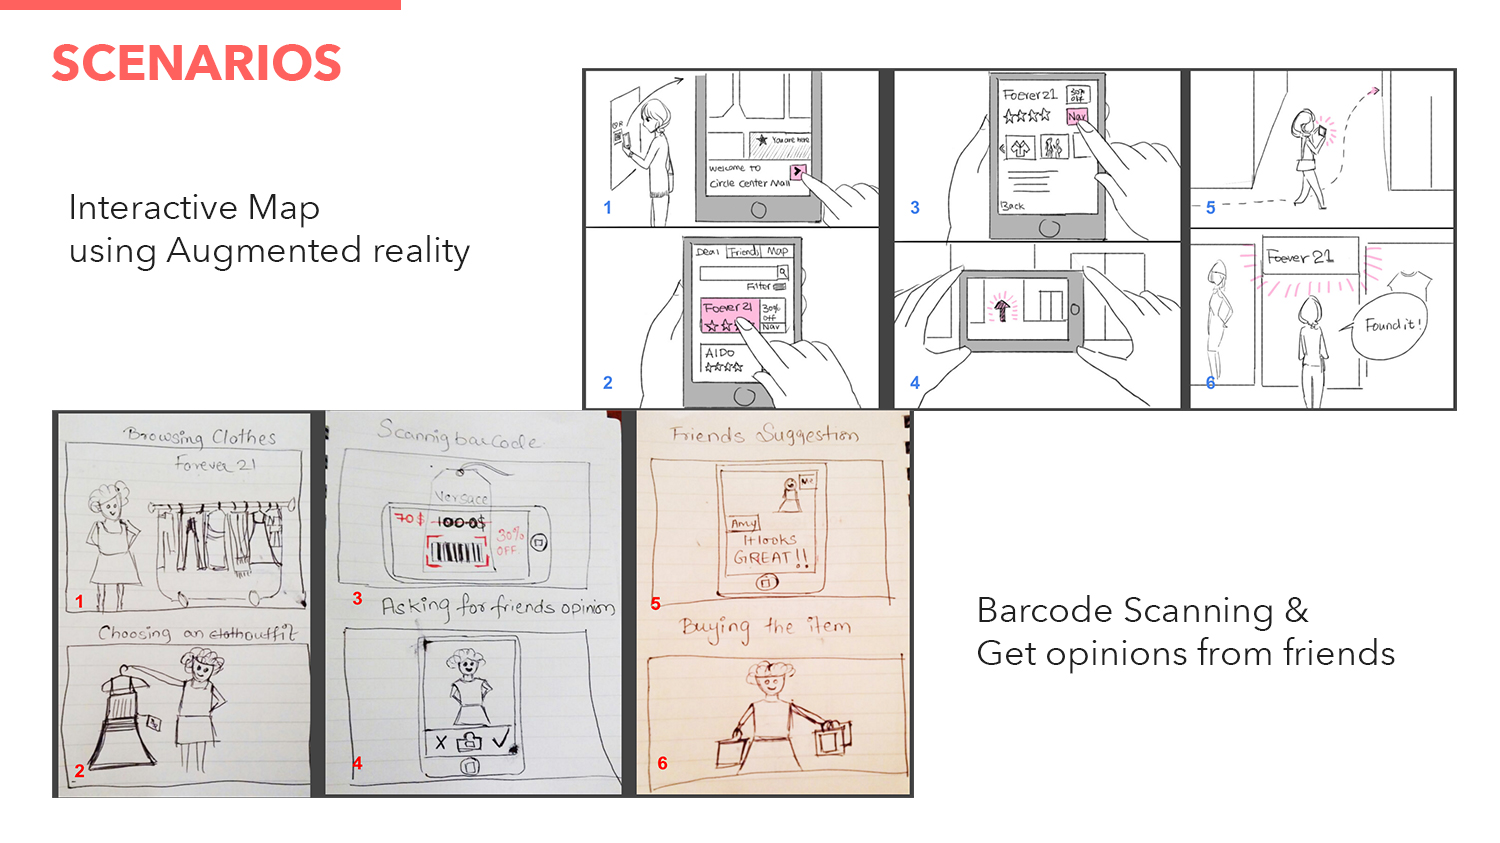 SCENARIOS
Interactive Map
using Augmented reality
QR
You are here
WELCOME TO
Circle Center Mall
1
Deal Friends Map
Filter
Foever 21
30%
off
Nav
AIDO
2
Foever21
30%
OFF
Nav
Back
3
4
5
Foever 21
Found it!
6
Browsing Clothes
Forever 21
1
Choosing an cloth outfit
2
Scannig barcode
Versace
70$ 100.0$
30%
OFF
3
Asking for friends opinion
X
4
Friends Suggestion
Amy
It looks
GREAT!!
5
Buying the item
6
Barcode Scanning &
Get opinions from friends